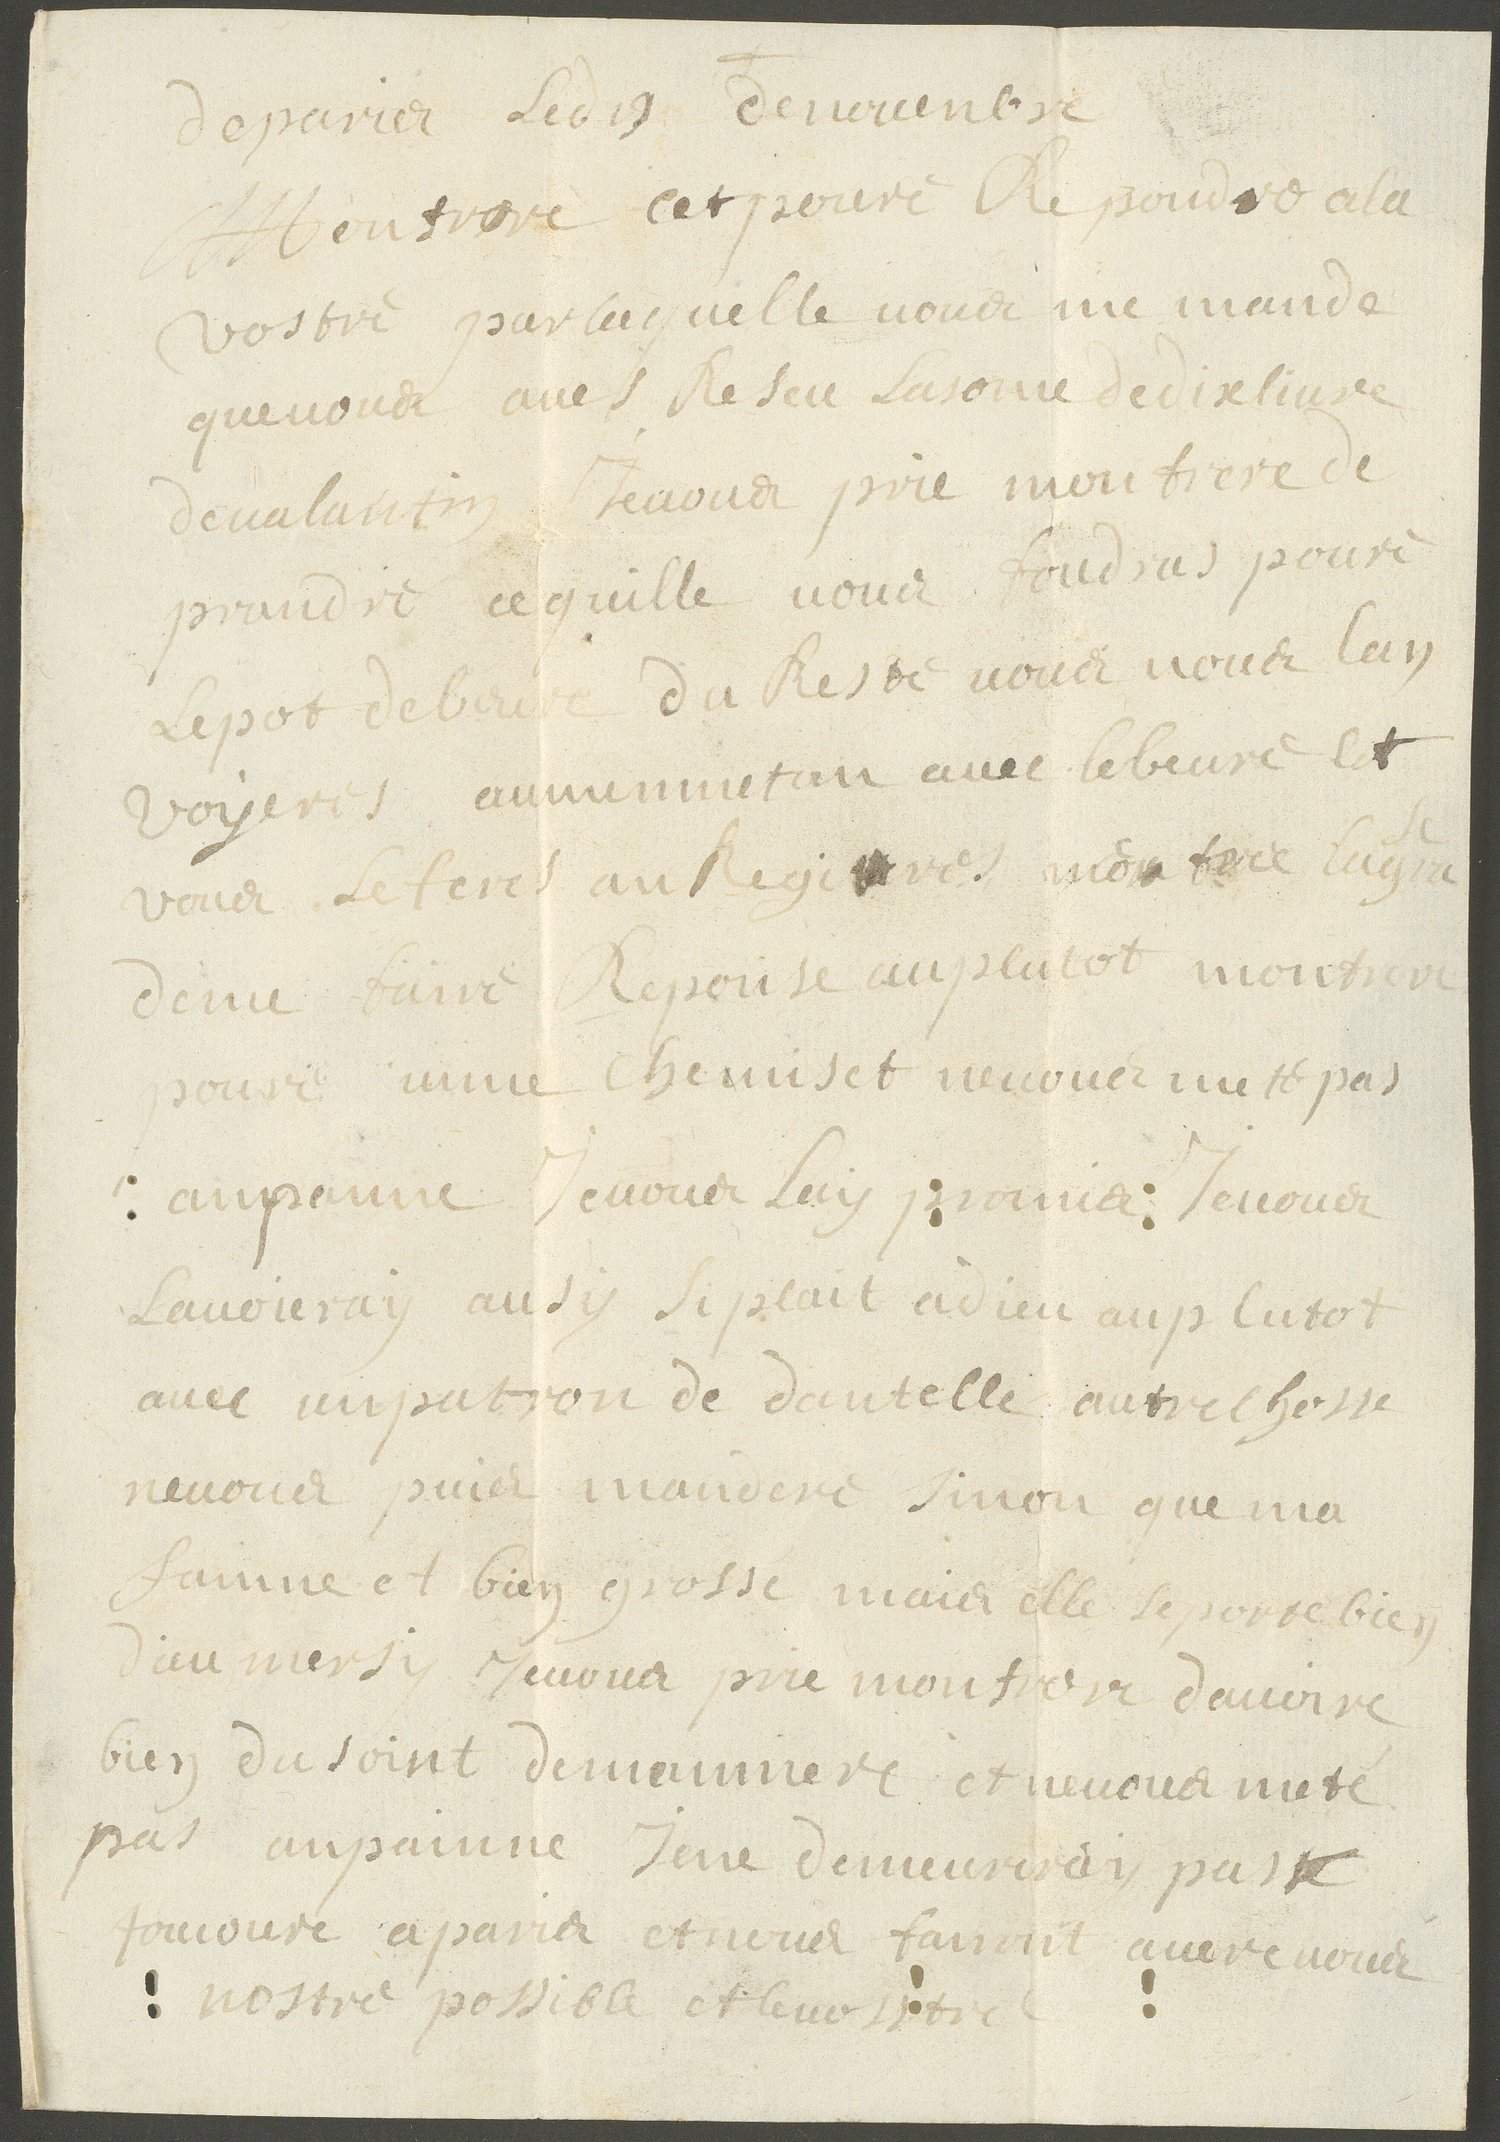 deparis Led 19 denouenbre
Monfrere cet poure Repondre ala
vostre parlaquelle uous me mande
queuous aues Reseu Lasome dedixliure
deualantin Jeuous prie monfrere de
prandre cequille uous foudras poure
Lepot debeure du Reste uous nous lan
voyeres anmemmetan auec lebeure et
vous Leferes anRegitres monfrere lagra se
deme faire Reponse auplutot monfrere
poure unne Chemiset neuous mette pas
: anpanne Jeuous Lay promis : Jeuous
Lanvoieray ausy siplait adieu auplutot
auec unpatron de dantelle autrechosse
neuous puis mandere sinon que ma
famme et bien grosse mais elle seportebien
dieu mersy Jeuous prie monfrere dauoire
bien dusoint demammere et neuous mete
pas anpainne Jene demeureray pas
toujoure aparis etnous fairont auere uous
: nostre possible etleuostre :